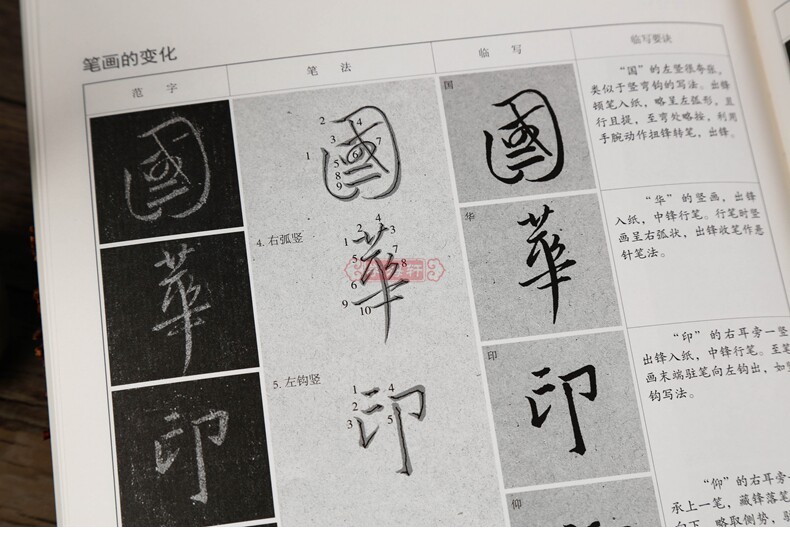 笔画的变化
范 字
笔 法
临 写
临写要诀
國
2 4
3 7
1 5 6
8
9
国
國
“国”的左竖很夸张，
类似于竖弯钩的写法。出锋
顿笔入纸，略呈左弧形，且
行且提，至弯处略按，利用
手腕动作扭锋转笔，出锋。
華
4. 右弧竖
4
2 3
1 7
5 8
6
9 10
華
华
華
“华”的竖画，出锋
入纸，中锋行笔。行笔时竖
画呈右弧状，出锋收笔作悬
针笔法。
轩
印
5. 左钩竖
1 4
2
3 5
印
印
印
“印”的右耳旁一竖
出锋入纸，中锋行笔。至笔
画末端驻笔向左钩出，如竖
钩写法。
仰
“仰”的右耳旁一
承上一笔，藏锋落笔
向下，略取侧势，